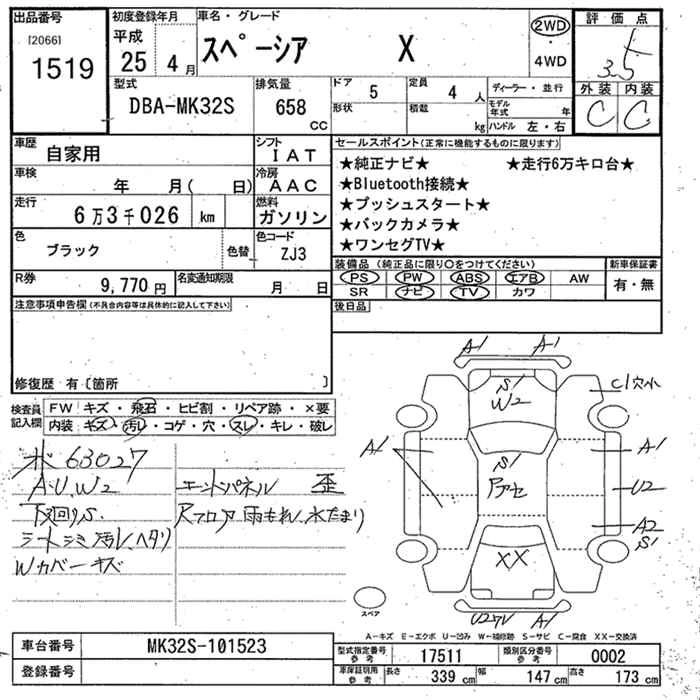 出品番号 初度登録年月 車名・グレード 評価点
[2066] 平成 2WD
1519 25年 4月 スペーシア X ・ 3.5
4WD
型式 排気量 ドア 5 定員 4人 ディーラー・並行 外装 内装
DBA-MK32S 658 CC 形状 積載 kg モデル年式 年 C C
ハンドル 左・右
車歴 自家用 シフト IAT セールスポイント(正常に機能するものに限ります)
車検 年 月( 日) 冷房 AAC ★純正ナビ★ ★走行6万キロ台★
走行 6万3千026 km 燃料 ガソリン ★Bluetooth接続★
★プッシュスタート★
色 ブラック 色替 色コード ZJ3 ★バックカメラ★
★ワンセグTV★
R券 9,770円 名変通知期限 月 日 装備品(純正品に限り○をつけてください) 新車保証書
PS PW ABS エアB AW 有・無
SR ナビ TV カワ
注意事項申告欄(不具合内容等は具体的に記入して下さい) 後日品
修復歴 有〔箇所 〕
検査員記入欄 FW キズ・飛石・ヒビ割・リペア跡・×要
内装 キズ・汚レ・コゲ・穴・スレ・キレ・破レ
63027
A.U.W2 エンドパネル 歪
下廻りS. Rフロア 雨もれ、水たまり
シートシミ汚レ、ヘタリ
Wカバーキズ
A1 A1
S1
W2
C1穴小
A1 S1 A1
Rアセ U2
A2
S1
XX
スペア
U2 A1
A-キズ E-エクボ U-凹み W-補修跡 S-サビ C-腐食 XX-交換済
車台番号 MK32S-101523
型式指定番号 参考 17511 類別区分番号 参考 0002
登録番号
車庫証明用 参考 長さ 339 cm 幅 147 cm 高さ 173 cm